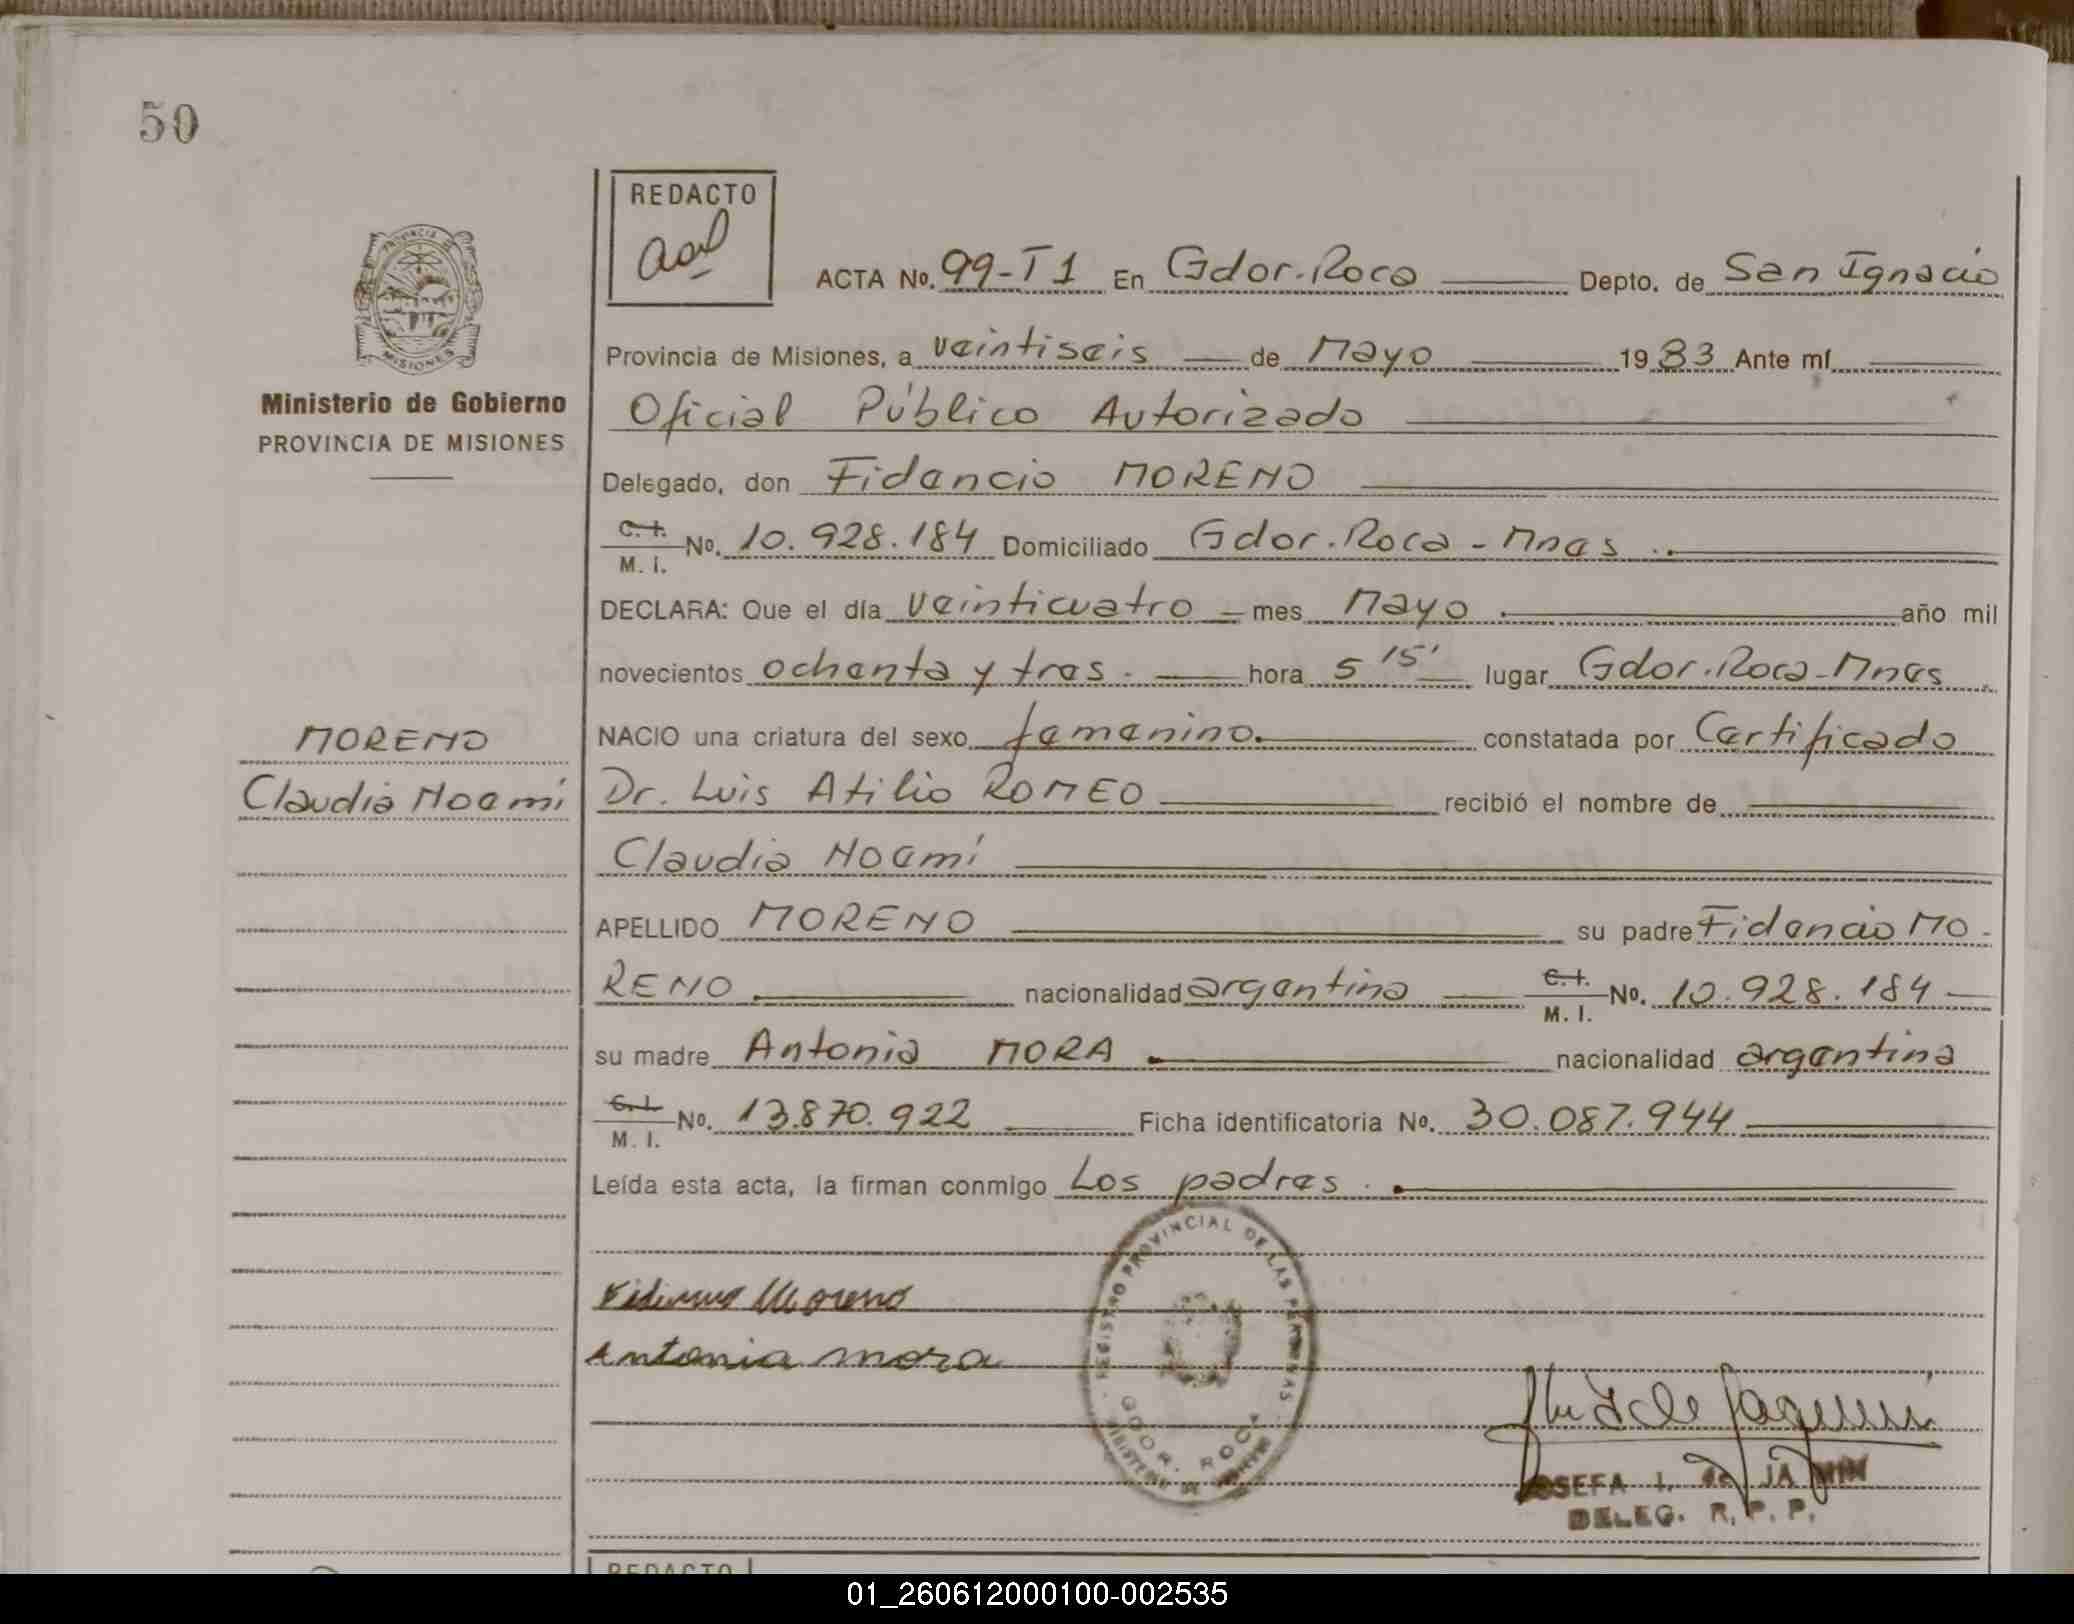 50
REDACTO
PROVINCIA
MISIONES
Ministerio de Gobierno
PROVINCIA DE MISIONES
ACTA No. 99-T1 En Gdor. Roca Depto. de San Ignacio
Provincia de Misiones, a veintiseis de Mayo 1983 Ante mí
Oficial Público Autorizado
Delegado, don Fidencio MORENO
C. I. M. I. No. 10.928.184 Domiciliado Gdor. Roca - Mnes
DECLARA: Que el día veinticuatro mes Mayo año mil
novecientos ochenta y tres. hora 5 15' lugar Gdor. Roca - Mnes
NACIO una criatura del sexo femenino. constatada por Certificado
Dr. Luis Atilio ROMEO recibió el nombre de
Claudia Noemí
MORENO
Claudia Noemí
APELLIDO MORENO su padre Fidencio MO-
RENO nacionalidad argentina C. I. M. I. No. 10.928.184
su madre Antonia MORA nacionalidad argentina
C. I. M. I. No. 13.870.922 Ficha identificatoria No. 30.087.944
Leída esta acta, la firman conmigo Los padres.
Moreno
Antonia mora
REGISTRO PROVINCIAL DE LAS PERSONAS
GDOR. ROCA
JOSEFA I. de
DELEG. R. P. P.
REDACTO
01_260612000100-002535